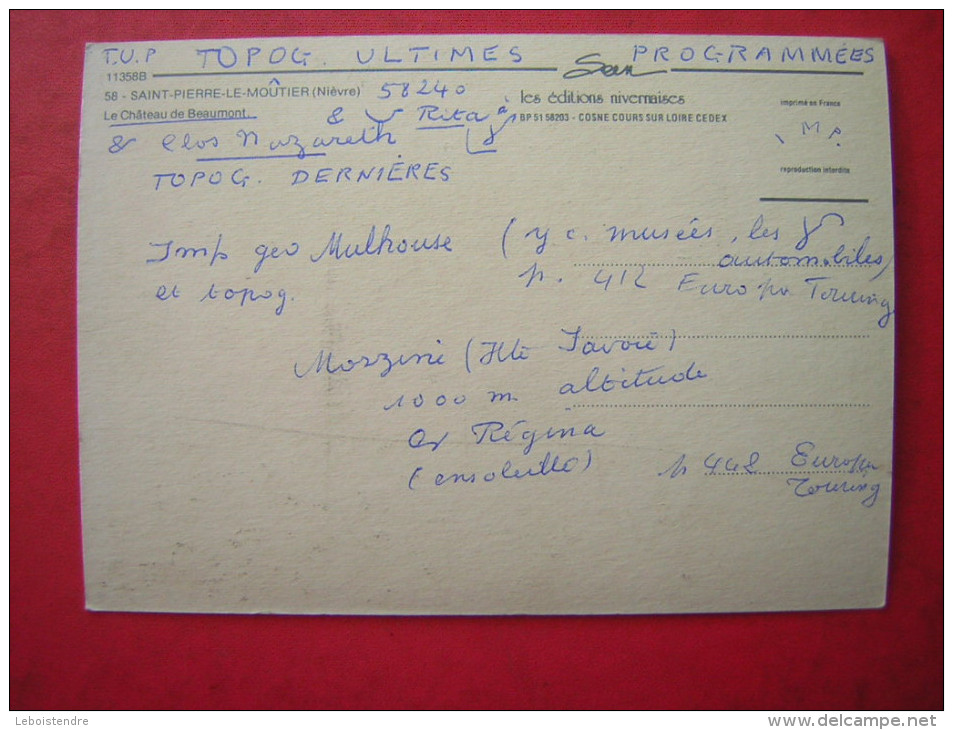 T.U.P TOPOG. ULTIMES PROGRAMMÉES
11358B
58 - SAINT-PIERRE-LE-MOÛTIER (Nièvre) 58240
Le Château de Beaumont.
& Rita à
& Clos Nazareth
les éditions nivernaises
BP 51 58203 - COSNE COURS SUR LOIRE CEDEX
imprimé en France
M P.
reproduction interdite
TOPOG. DERNIÈRES
Imp geo Mulhouse (y c. musées, les
automobiles)
et topog.
p. 412 Europa Touring
Morzine (Hte Savoie)
1000 m altitude
Régina
(ensoleillé)
p 448 Europa
Touring
Leboistendre
www.delcampe.net